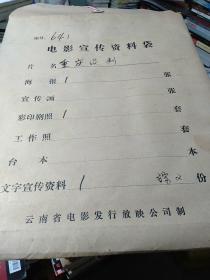 编号: 641
电影宣传资料袋
片名
海报 1 张
宣传画 张
彩印剧照 1 套
工作照 套
台本 本
文字宣传资料 1 份
云南省电影发行放映公司制